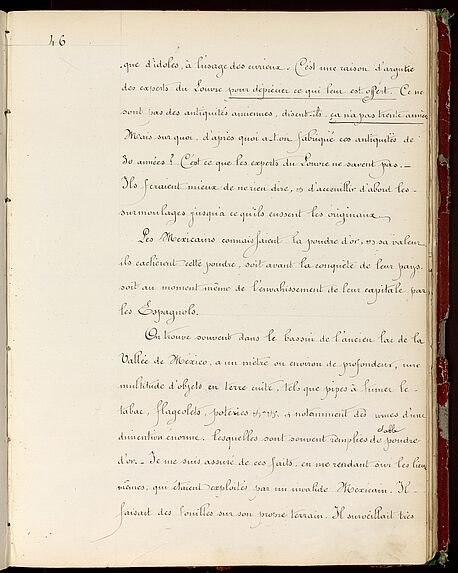 46
que d'idoles, à l'usage des curieux. C'est une raison d'argutie
des experts du Louvre pour déprécier ce qui leur est offert. Ce ne
sont pas des antiquités anciennes, disent-ils, ça n'a pas trente années
Mais sur quoi, d'après quoi a-t-on fabriqué ces antiquités de
30 années? C'est ce que les experts du Louvre ne savent pas. —
Ils feraient mieux de ne rien dire, et d'accueillir d'abord les
surmoulages jusqu'à ce qu'ils eussent les originaux
Les Mexicains connaissaient la poudre d'or, et sa valeur
ils cachèrent cette poudre, soit avant la conquête de leur pays
soit au moment même de l'envahissement de leur capitale par
les Espagnols.
On trouve souvent dans le bassin de l'ancien lac de la
Vallée de México, a un mètre ou environ de profondeur, une
multitude d'objets en terre cuite, tels que pipes à fumer le
tabac, flageolets, poteries et notamment des urnes d'une
dimention énorme, lesquelles sont souvent remplies de poudre
d'or. — Je me suis assuré de ces faits, en me rendant sur les lieux
mêmes, qui étaient exploités par un invalide Mexicain. Il
faisait des fouilles sur son propre terrain. Il surveillait très